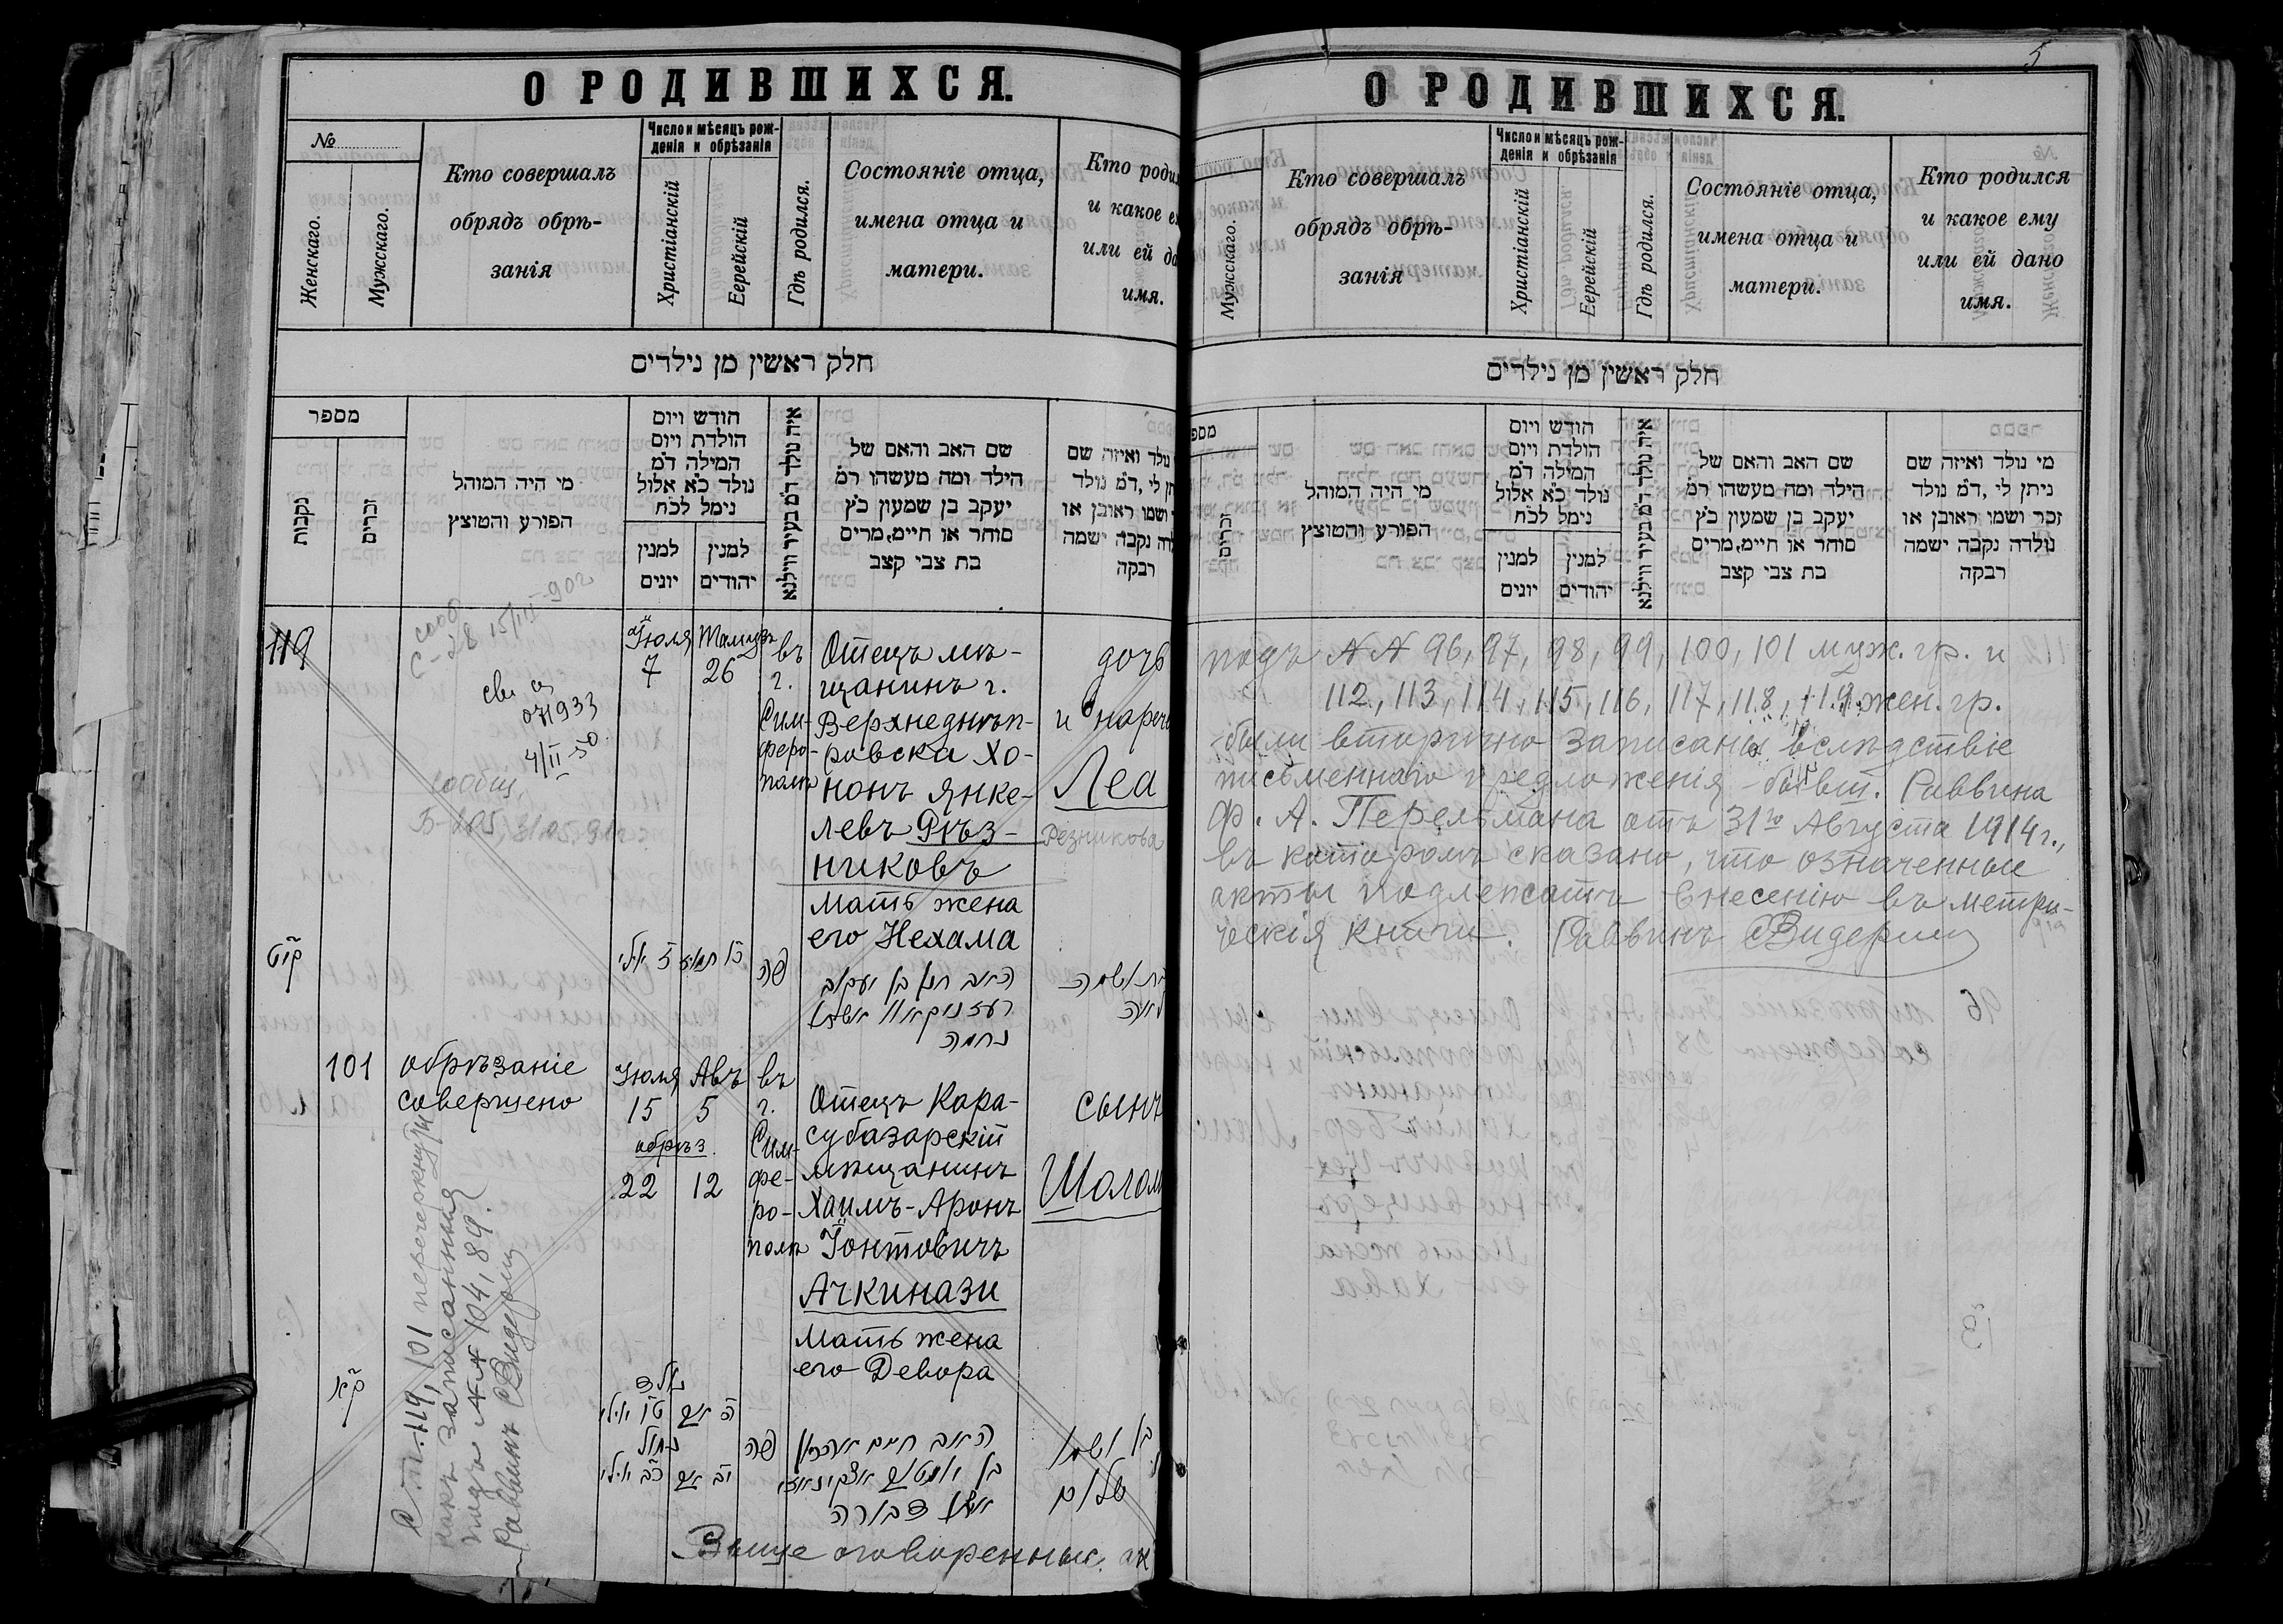 О РОДИВШИХСЯ.
№
Женскаго.
Мужскаго.
Кто совершалъ
обрядъ обрѣ-
занія
Число и мѣсяцъ рож-
денія и обрѣзанія
Христіанскій
Еврейскій
Гдѣ родился.
Состояніе отца,
имена отца и
матери.
Кто роди
и какое е
или ей да
имя.
חלק ראשין מן נילדים
מספר
נקבות
זכרים
מי היה המוהל
הפורע והטוצץ
חודש ויום
הולדת ויום
המילה ד״מ
נולד כ״א אלול
נימל לכ״ח
למנין
יונים
למנין
יהודים
איה נולד ד״מ בעיר ווילנא
שם האב והאם של
הילד ומה מעשהו ר״מ
יעקב בן שמעון כ״ץ
סוחר או חיים, מרים
בת צבי קצב
נולד ואיזה שם
תן לי, ד״מ נולד
ושמו ראובן או
דה נקבה ישמה
רבקה
119
Іюля
7
Тамузъ
26
въ
г.
Сим-
феро-
полѣ
Отецъ мѣ-
щанинъ г.
Верхнеднѣп-
ровска Хо-
нонъ Янке-
левъ Рѣз-
никовъ
Мать жена
его Нехама
дочь
и нарече
Леа
Резникова
св. о
071933
4/II-50
קי״ט
כ״ו תמוז ז׳ יולי
פה
האב חנן בן יעקב
רעזניקאוו אשתו
נחמה
101
обрѣзаніе
совершено
Іюля
15
обрѣз.
22
Авъ
5
12
въ
г.
Сим-
фе-
ро-
полѣ
Отецъ Кара-
субазарскій
мѣщанинъ
Хаимъ-Аронъ
Іонтовичъ
Ачкинази
Мать жена
его Девора
сынъ
Шолом
ק״א
נולד
ה׳ אב ט״ו יולי
נמול
י״ב אב כ״ב יולי
פה
האב חיים אהרן
בן יאנטוב אצקינאזי
אשתו דבורה
בן ושמו
שלום
Ст. 119, 101 перечеркнуты
какъ записанныя
подъ №№ 104, 89.
Раввинъ Видеръ
Выше оговоренные ак
5
О РОДИВШИХСЯ.
Мужскаго.
Кто совершалъ
обрядъ обрѣ-
занія
Число и мѣсяцъ рож-
денія и обрѣзанія
Христіанскій
Еерейскій
Гдѣ родился.
Состояніе отца,
имена отца и
матери.
Кто родился
и какое ему
или ей дано
имя.
חלק ראשין מן נילדים
מספ
זכרים
מי היה המוהל
הפורע והטוצץ
חודש ויום
הולדת ויום
המילה ד״מ
נולד כ״א אלול
נימל לכ״ח
למנין
יונים
למנין
יהודים
איה נולד ד״מ בעיר ווילנא
שם האב והאם של
הילד ומה מעשהו ר״מ
יעקב בן שמעון כ״ץ
סוחר או חיים, מרים
בת צבי קצב
מי נולד ואיזה שם
ניתן לי, ד״מ נולד
זכר ושמו ראובן או
נולדה נקבה ישמה
רבקה
подъ №№ 96, 97, 98, 99, 100, 101 муж. гр. и
112, 113, 114, 115, 116, 117, 118, 119 жен. гр.
были вторично записаны вслѣдствіе
письменнаго предложенія бывш. Раввина
Ф. А. Перельмана отъ 31го Августа 1914 г.,
въ которомъ сказано, что означенные
акты подлежатъ внесенію въ метри-
ческія книги. Раввинъ Видеръ